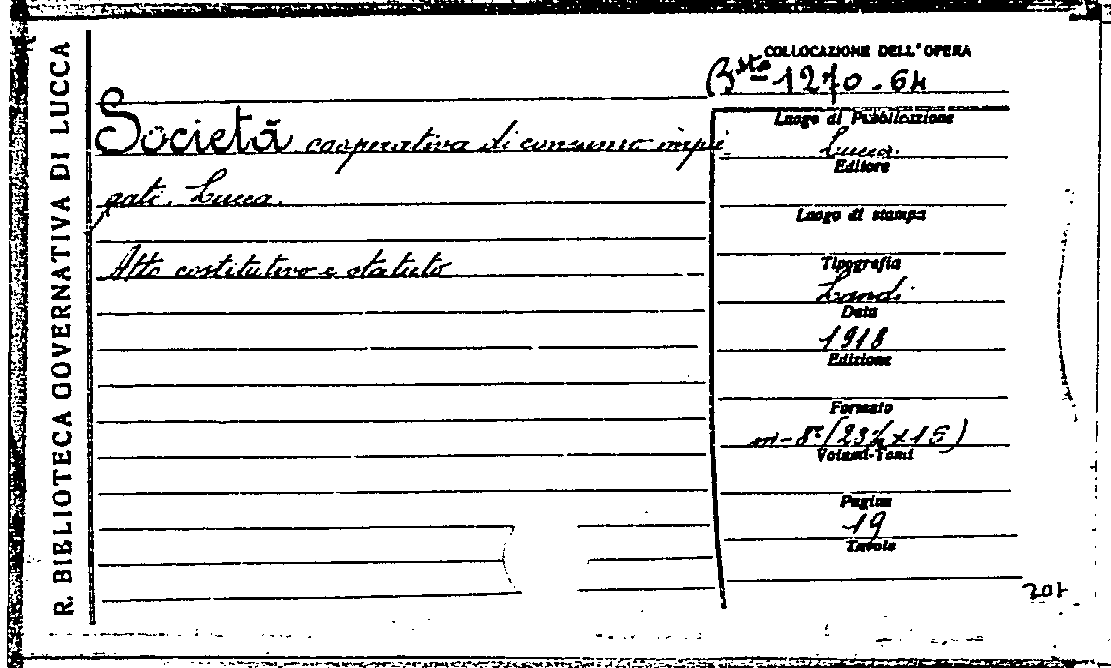 R. BIBLIOTECA GOVERNATIVA DI LUCCA
COLLOCAZIONE DELL'OPERA
Bsta 1270.64
Società cooperativa di consumo impie
gati. Lucca.
Atto costitutivo e statuto
Luogo di Pubblicazione
Lucca.
Editore
Luogo di stampa
Tipografia
Landi
Data
1918
Edizione
Formato
in-8º (23½ x 15)
Volumi-Tomi
Pagine
19
Tavole
201